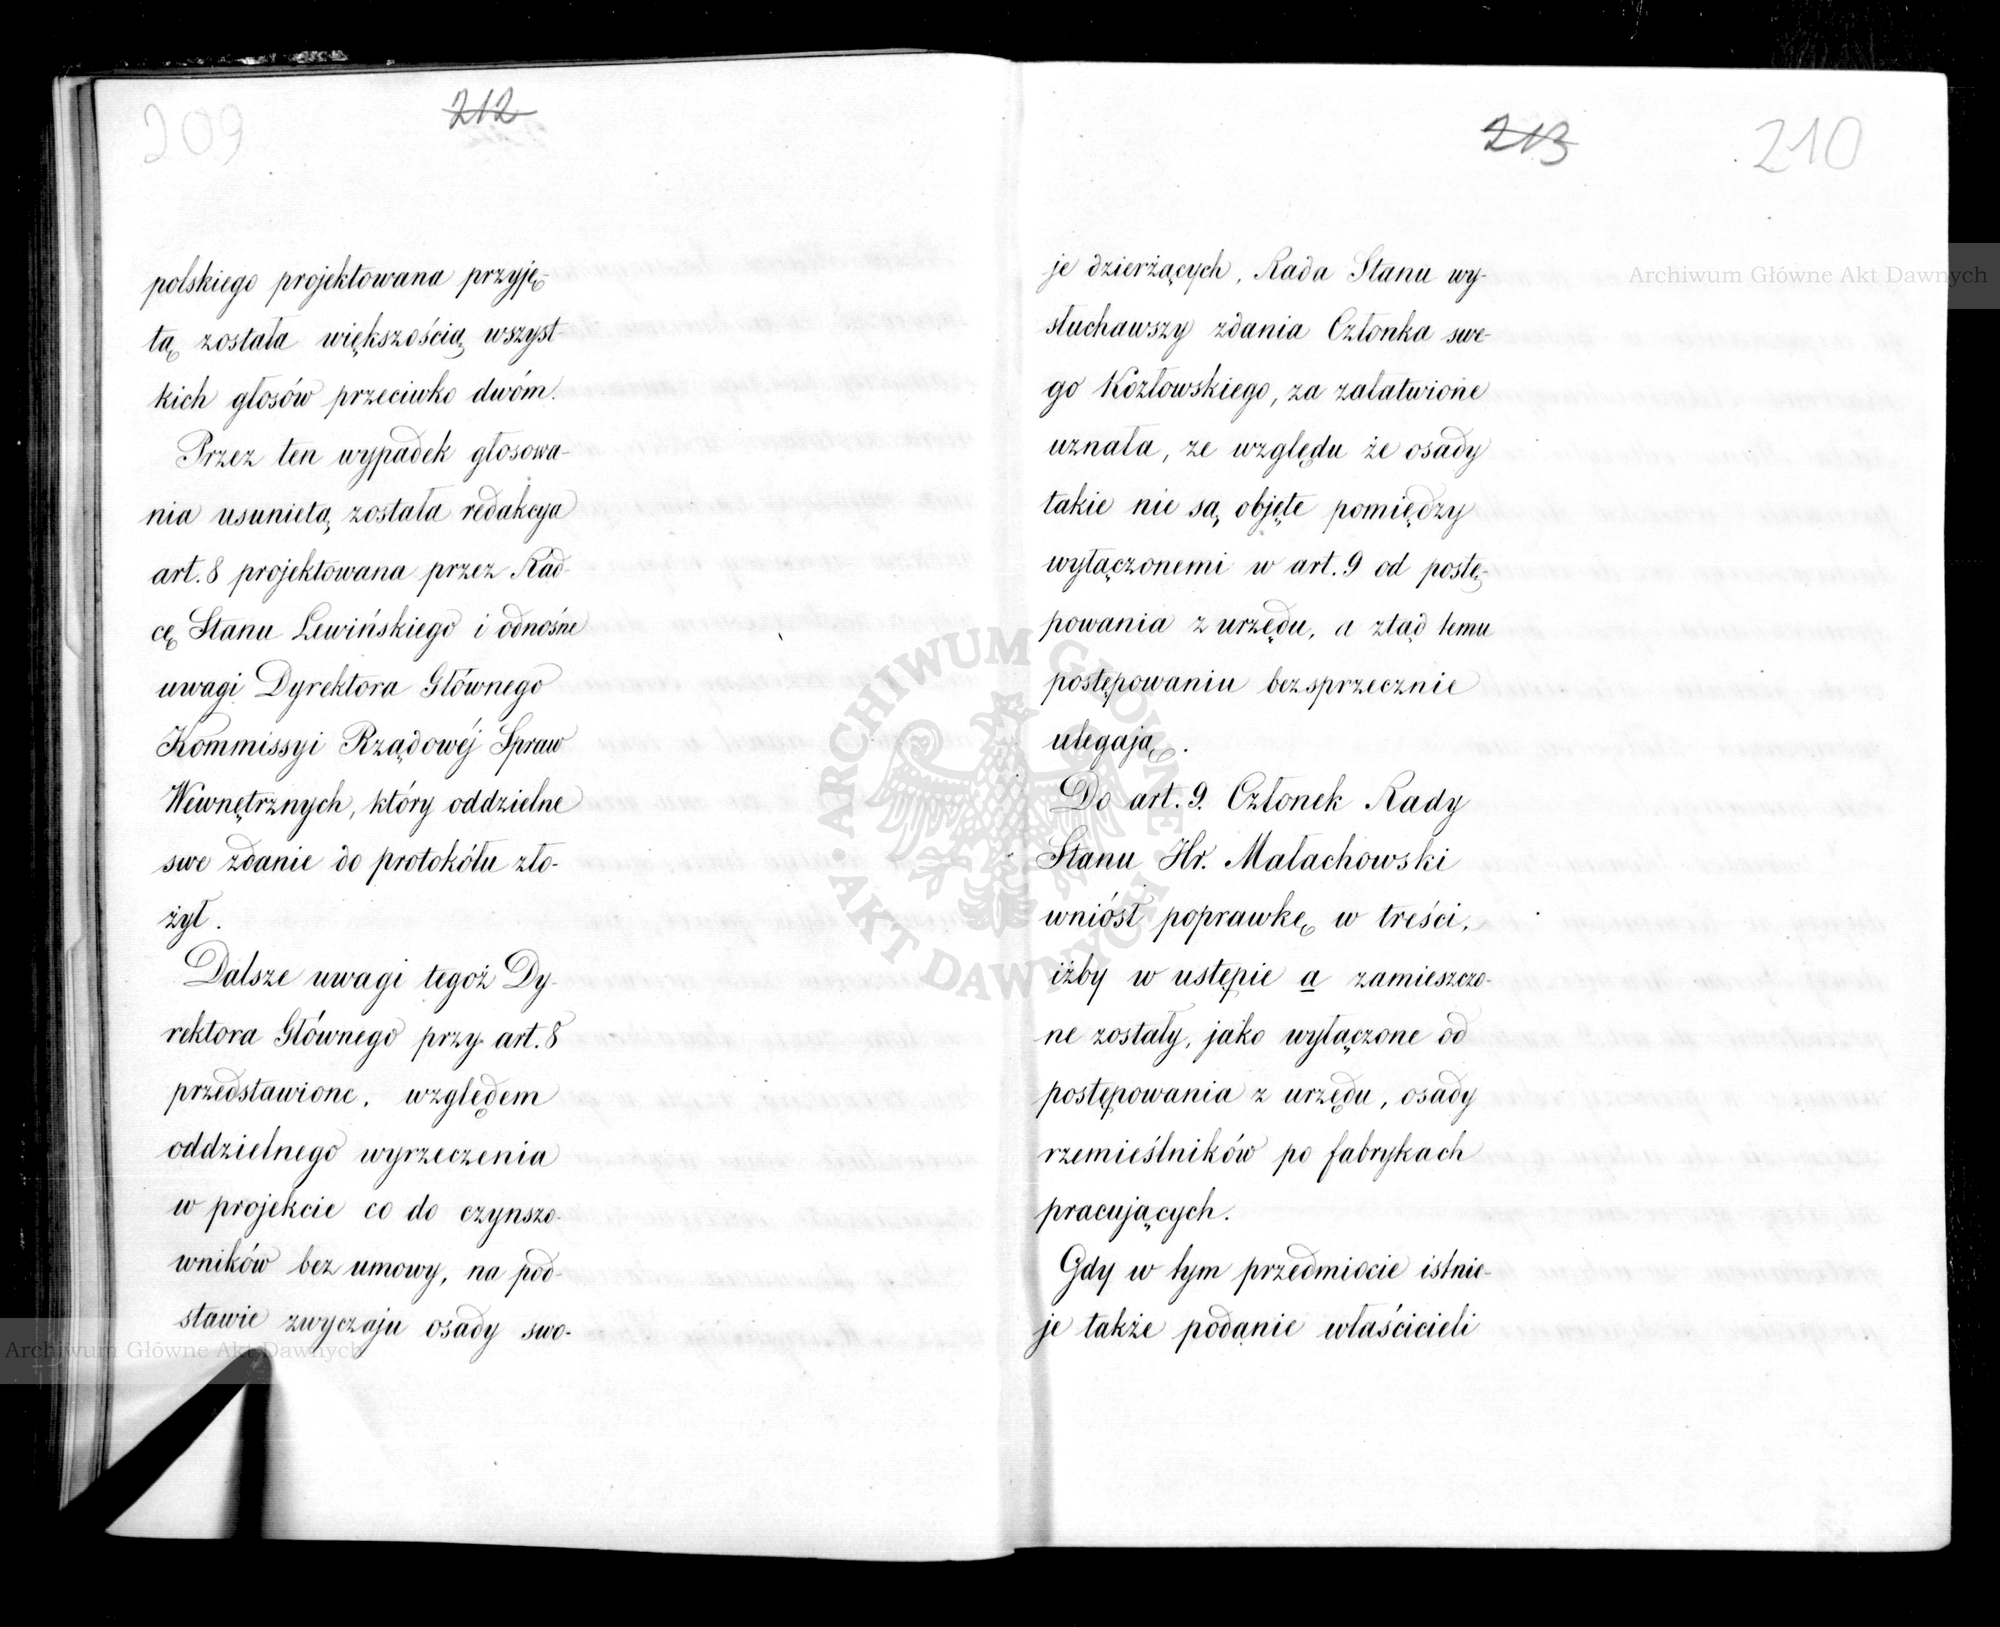 209
212
polskiego projektowana przyję-
tą została większością wszyst-
kich głosów przeciwko dwóm.
Przez ten wypadek głosowa-
nia usunietą została redakcya
art. 8 projektowana przez Rad-
cę Stanu Lewińskiego i odnośne
uwagi Dyrektora Głównego
Kommissyi Rządowéj Spraw
Wewnętrznych, który oddzielne
swe zdanie do protokółu zło-
żył.
Dalsze uwagi tegoż Dy-
rektora Głównego przy art. 8
przedstawione, względem
oddzielnego wyrzeczenia
w projekcie co do czynszo-
wników bez umowy, na pod-
stawie zwyczaju osady swo-
213
210
je dzierżących, Rada Stanu wy-
słuchawszy zdania Członka swe-
go Kozłowskiego, za załatwione
uznała, ze względu że osady
takie nie są objęte pomiędzy
wyłączonemi w art. 9 od postę-
powania z urzędu, a ztąd temu
postępowaniu bezsprzecznie
ulegają.
Do art. 9. Członek Rady
Stanu Hr. Małachowski
wniósł poprawkę w treści,
iżby w ustępie a zamieszczo-
ne zostały, jako wyłączone od
postępowania z urzędu, osady
rzemieślników po fabrykach
pracujących.
Gdy w tym przedmiocie istnie-
je także podanie właścicieli
Archiwum Główne Akt Dawnych
Archiwum Główne Akt Dawnych
ARCHIWUM GŁÓWNE
AKT DAWNYCH